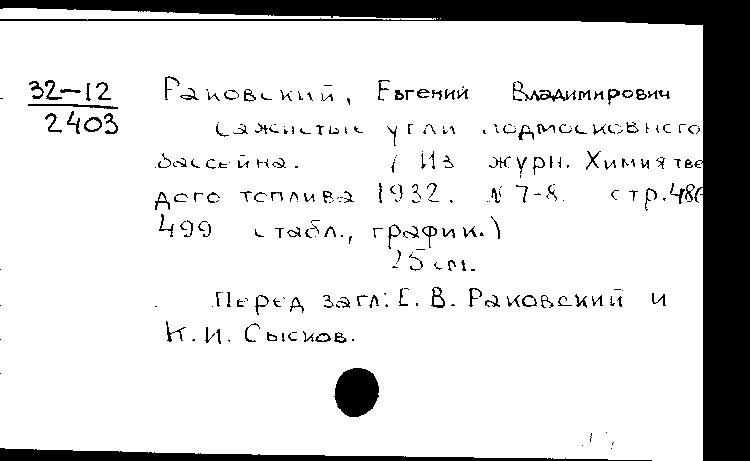 32-12
2403
Раковский, Евгений Владимирович
Сажистые угли подмосковного
бассейна. ( Из журн. Химия тве
дого топлива 1932. N 7-8. стр.486
499 с табл., график.)
25 см.
Перед загл: Е. В. Раковский и
К. И. Сысков.